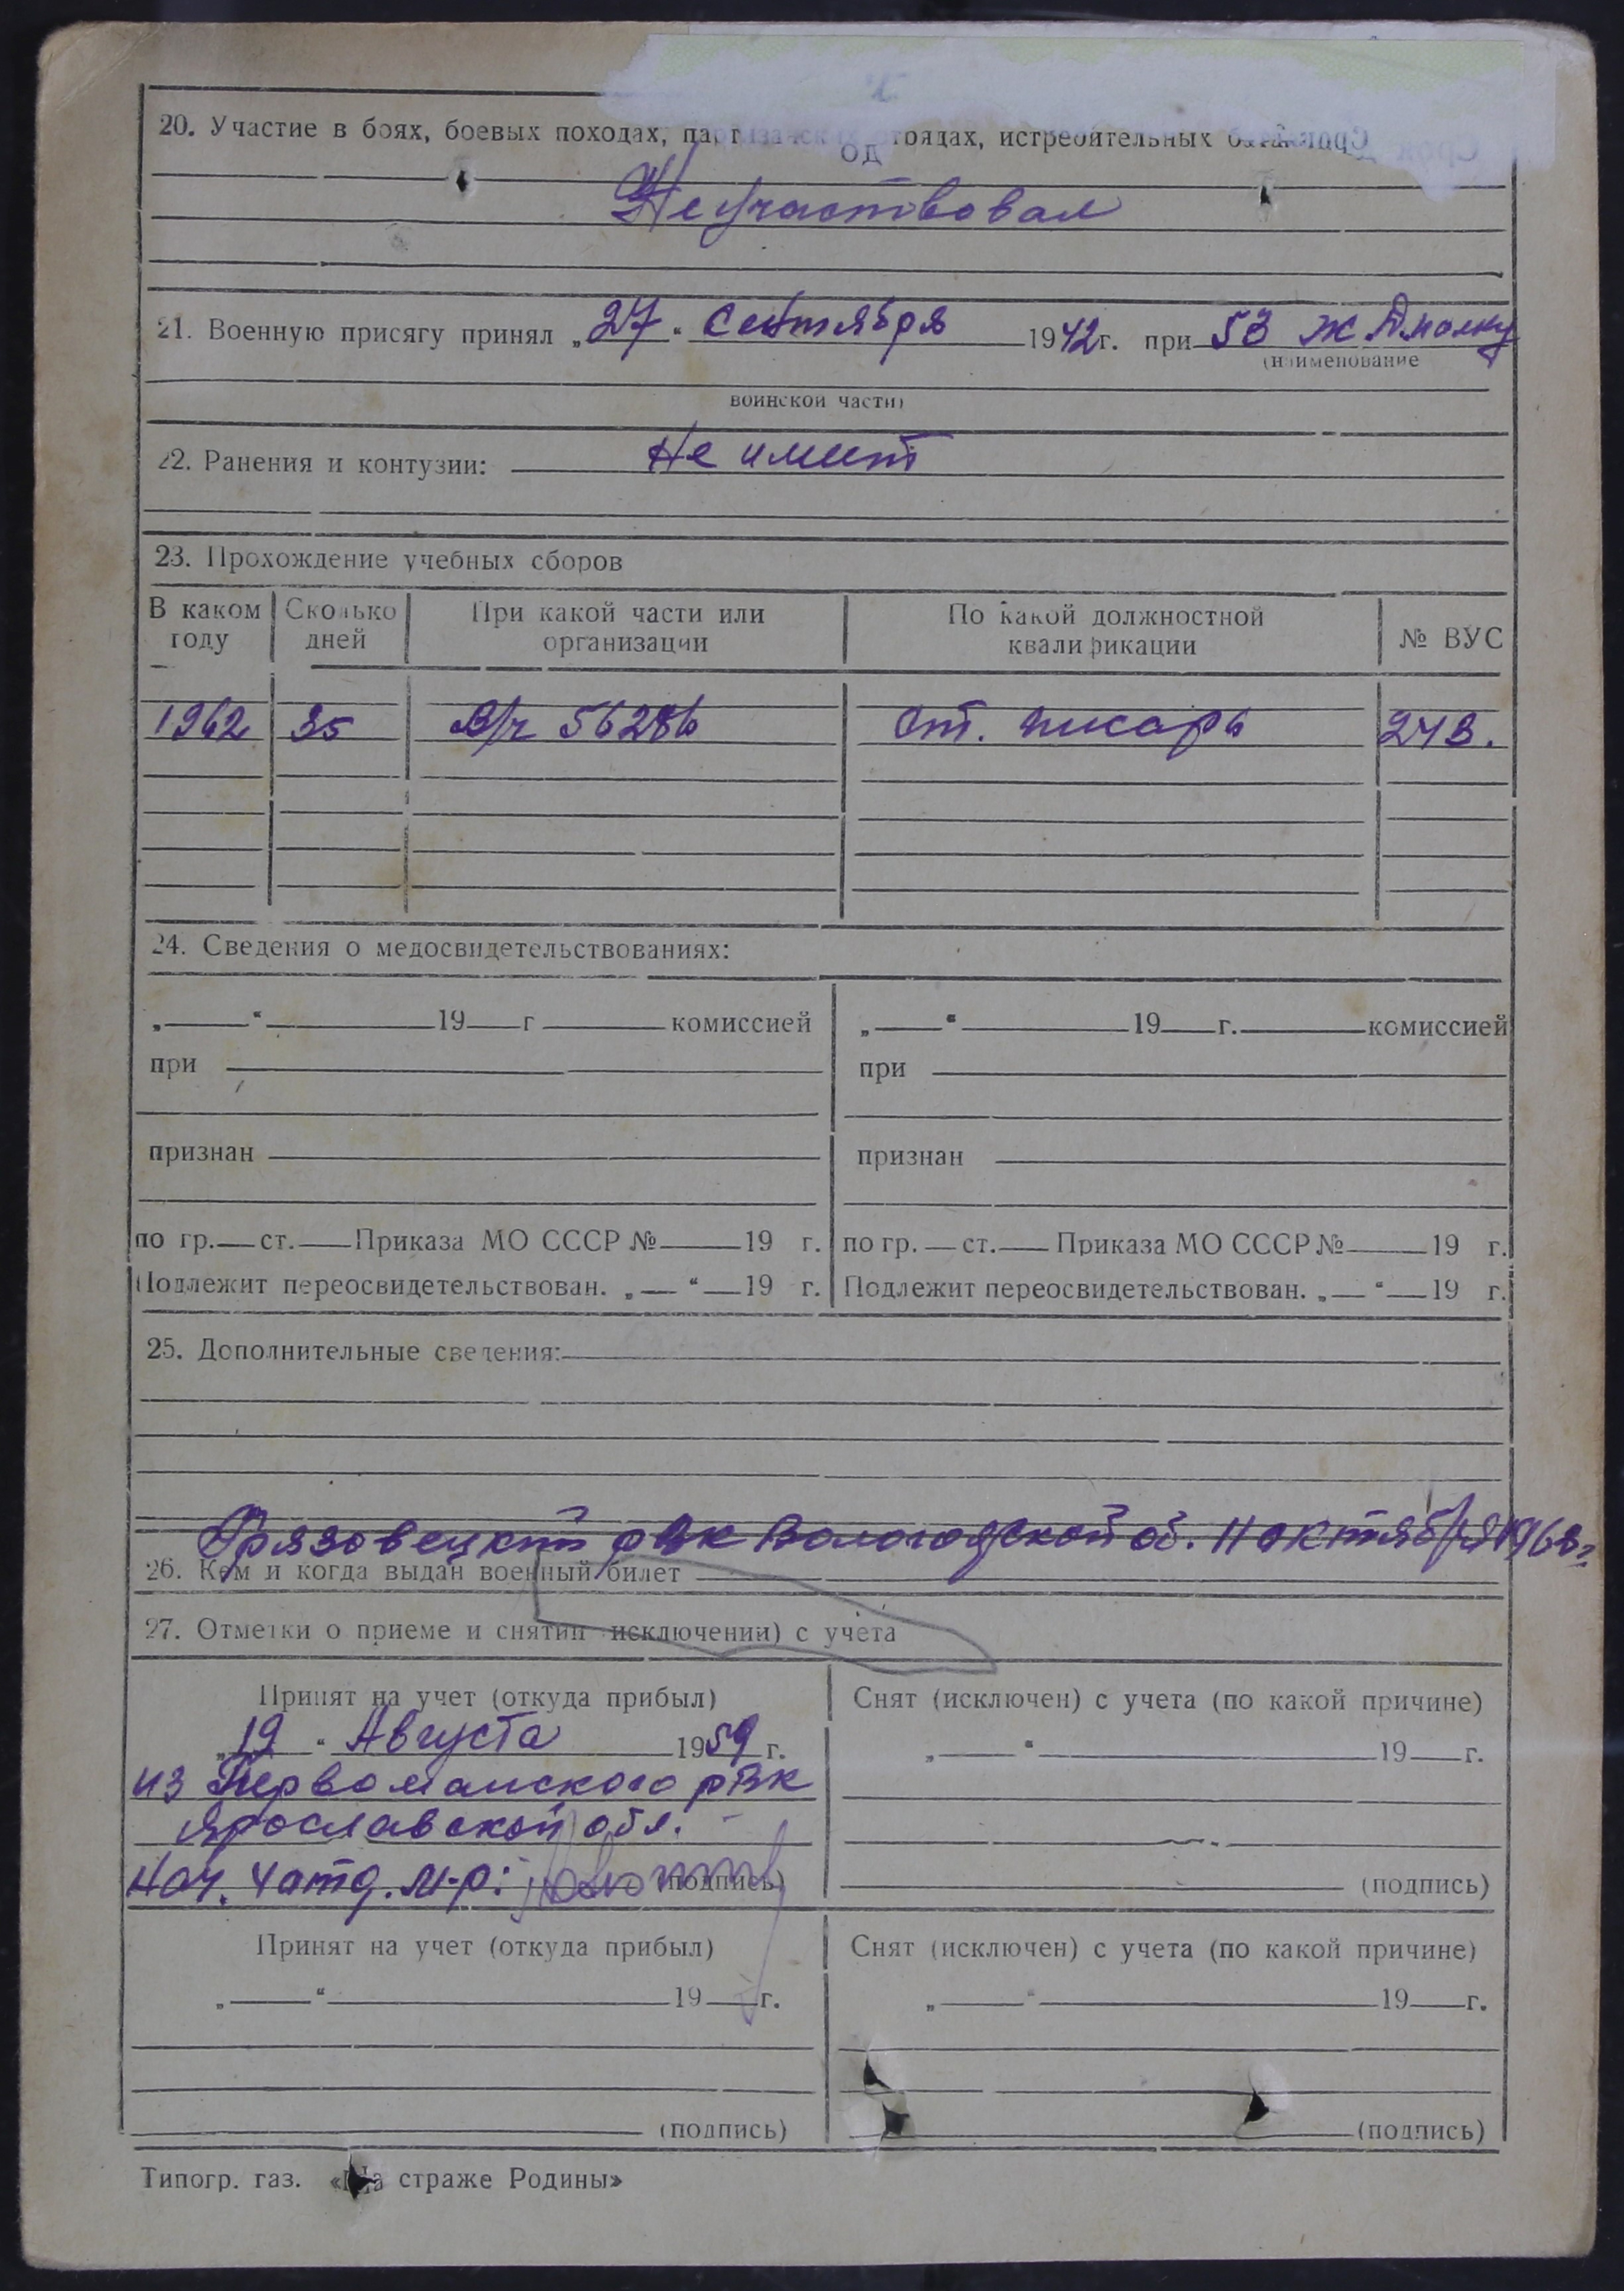 20. Участие в боях, боевых походах, истребительных
Не участвовал
21. Военную присягу принял „27“ сентября 1942г. при 53
(наименование
воинской части)
22. Ранения и контузии: Не имеет
23. Прохождение учебных сборов
В каком году Сколько дней При какой части или организации По какой должностной квалификации № ВУС
1962 35 В/ч 56286 Ст. писарь
24. Сведения о медосвидетельствованиях:
„ “ 19 г комиссией „ “ 19 г. комиссией
при при
признан признан
по гр. ст. Приказа МО СССР № 19 г. по гр. ст. Приказа МО СССР № 19 г.
Подлежит переосвидетельствован. „ “ 19 г. Подлежит переосвидетельствован. „ “ 19 г.
25. Дополнительные сведения:
Грязовецким рвк Вологодской об. 11 октября
26. Кем и когда выдан военный билет
27. Отметки о приеме и снятии исключении) с учета
Принят на учет (откуда прибыл) Снят (исключен) с учета (по какой причине)
„19“ Августа 1959 г. „ “ 19 г.
из Первомайского рвк
Ярославской обл.
Нач. м-р: (подпись) (подпись)
Принят на учет (откуда прибыл) Снят (исключен) с учета (по какой причине)
„ “ 19 г. „ “ 19 г.
(подпись) (подпись)
Типогр. газ. «На страже Родины»